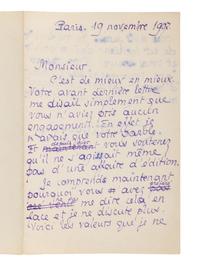 Paris. 19 novembre 19
Monsieur.
C'est de mieux en mieux.
Votre avant dernière lettre
me disait simplement que
vous n'aviez pris aucun
engagement. En effet je
n'avais que votre parole.
Et maintenant depuis hier vous soutenez
qu'il ne s'agissait même
pas d'une affaire d'édition.
Je comprends maintenant
pourquoi vous avez
me dire cela en
face et je ne discute plus.
Voici les valeurs que je ne